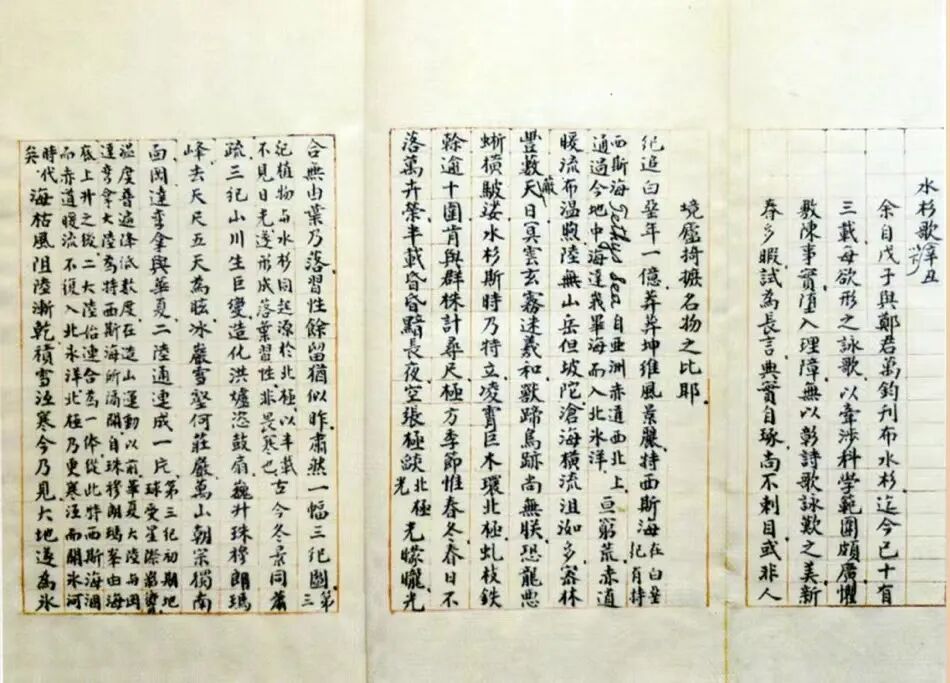 水杉歌 辛丑
余自戊子與鄭君萬鈞刊布水杉迄今已十有
三載每欲形之詠歌以牽涉科學範圍頗廣懼
敷陳事實墮入理障無以彰詩歌詠歎之美新
春多暇試為長言典實自琢尚不刺目或非人
境廬掎摭名物之比耶
紀追白堊年一億莽莽坤維風景麗特西斯海在白堊紀有特
西斯海Tethys Sea自亞洲赤道西北上通過今地中海達我畢海而入北氷洋亘窮荒赤道
暖流布温煦陸無山岳但坡陀滄海橫流沮洳多密林
豐藪蔽天日冥雲玄霧迷羲和獸蹄鳥跡尚無朕恐龍惡
蜥橫駊娑水杉斯時乃特立凌霄巨木環北極虬枝鐵
榦逾十圍肯與群株計尋尺極方季節惟春冬春日不
落萬卉榮半載昏昏黯長夜空張極燄北極光光朦朧光
合無由葉乃落習性餘留猶似昨肅然一幅三紀圖第三
紀植物與水杉同起源於北極以半載不見日光遂形成落葉習性非畏寒也古今冬景同蕭
疏三紀山川生巨變造化洪爐恣鼓扇巍升珠穆朗瑪
峰去天尺五天為眩冰巖雪壑何莊嚴萬山朝宗獨南
面岡達韋拿與華夏二陸通連成一片第三紀初期地球受星際影響
温度普遍降低數度在造山運動以前華夏大陸與岡
達韋拿大陸為特西斯海所隔開自珠穆朗瑪峯由海
底上升之後二大陸始連合為一体從此特西斯海涸
而赤道暖流不復入北氷洋北極乃更寒冱而開氷河
時代矣海枯風阻陸漸乾積雪冱寒今乃見大地遂為氷